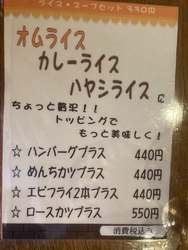 ライス・スープセット 330円
オムライス
カレーライス
ハヤシライス に
ちょっと贅沢！！
トッピングで
もっと美味しく！
☆ ハンバーグプラス 440円
☆ めんちカツプラス 440円
☆ エビフライ2本プラス 440円
☆ ロースカツプラス 550円
消費税込み